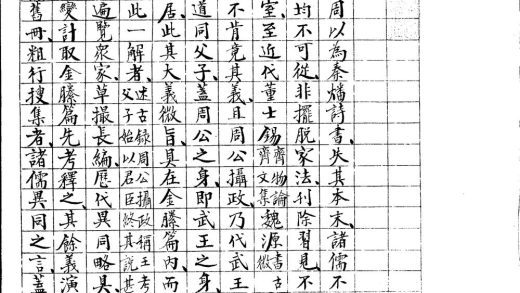 周以為秦燔詩書、失其本末、諸儒不
均不可從、非擺脫家法、刊除習見、不
室、至近代董士錫齊物論齋文集魏源書古微
不肯竟其義、且周公攝政、乃代武王
道同父子、蓋周公之身、即武王之身、
居此其大義微旨、具在金縢篇內、而
此一解者、述古錄周公攝政稱王考父子始以君臣終其說甚
遍覽衆家、草撮長編、歷代異同略具、
變計取金縢篇、先考釋之、其餘義演
舊冊粗行搜集者、諸儒異同之言、蓋